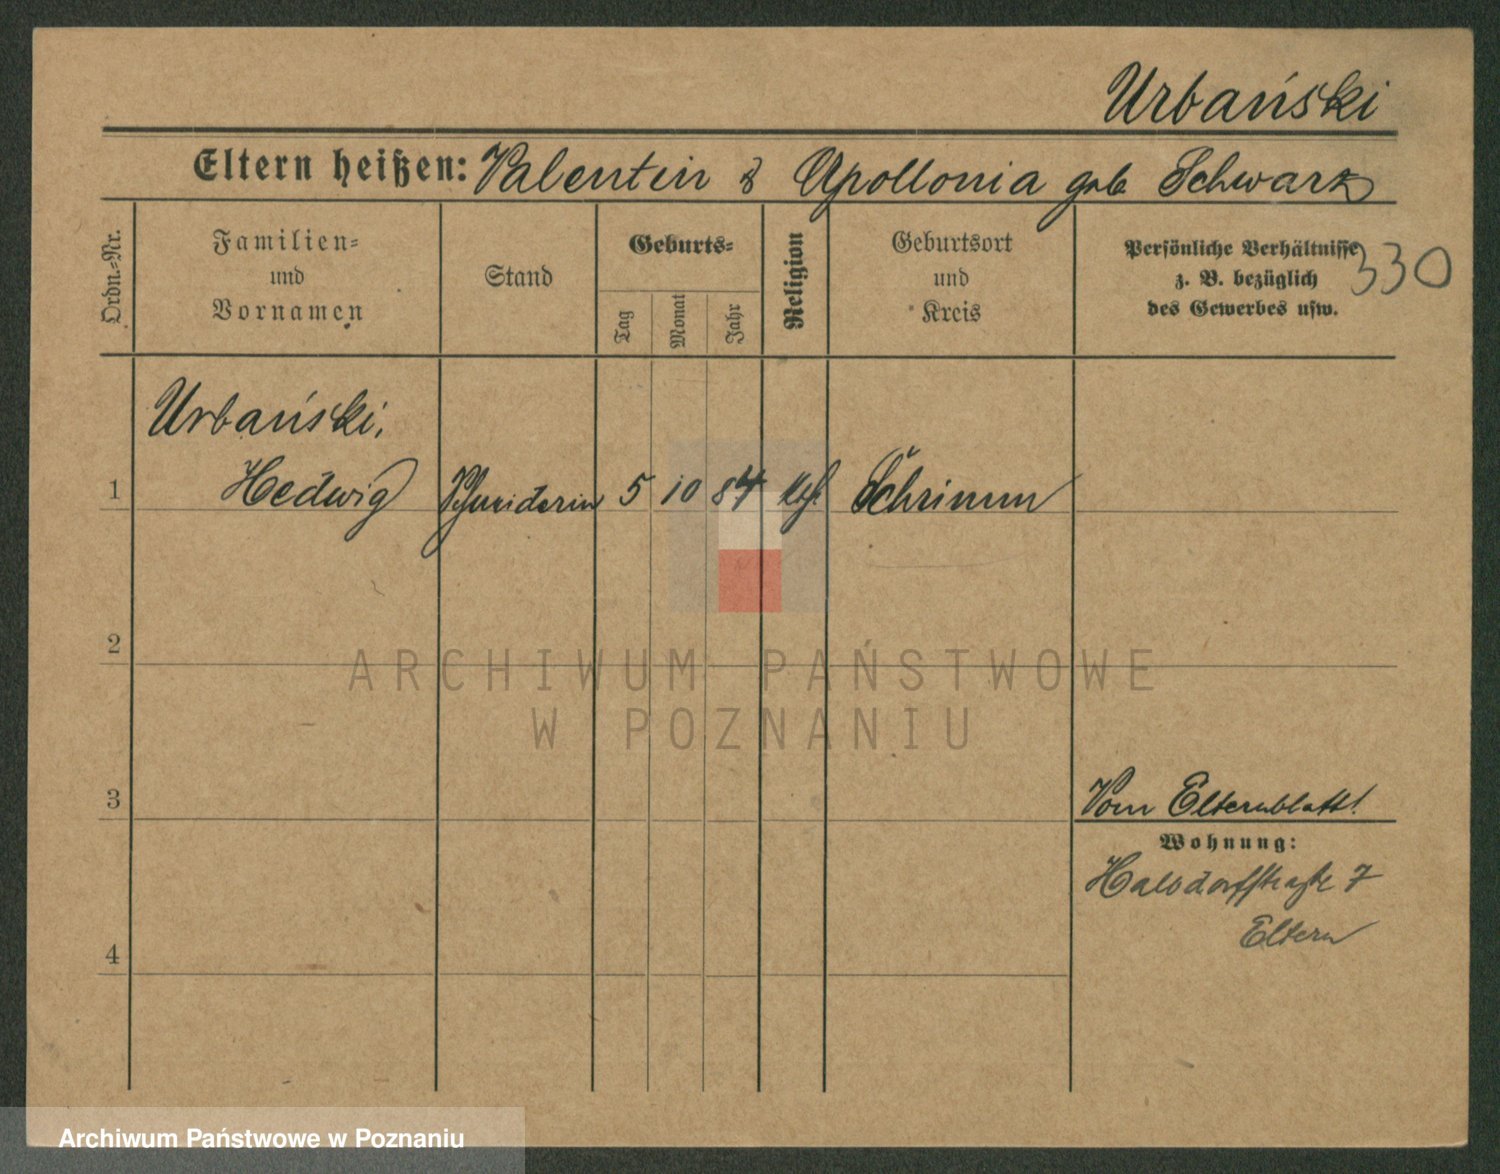 Urbański
Eltern heißen: Valentin & Apollonia geb Schwarz
Ordn.=Nr.
Familien=
und
Vornamen
Stand
Geburts=
Tag
Monat
Jahr
Religion
Geburtsort
und
Kreis
Persönliche Verhältnisse
z. B. bezüglich
des Gewerbes usw.
330
Urbański,
1 Hedwig Schneiderin 5 10 84 kath. Schrimm
2
ARCHIWUM PAŃSTWOWE
W POZNANIU
3 Vom Elternblatt!
Wohnung:
Halsdorfstraße 7
Eltern
4
Archiwum Państwowe w Poznaniu